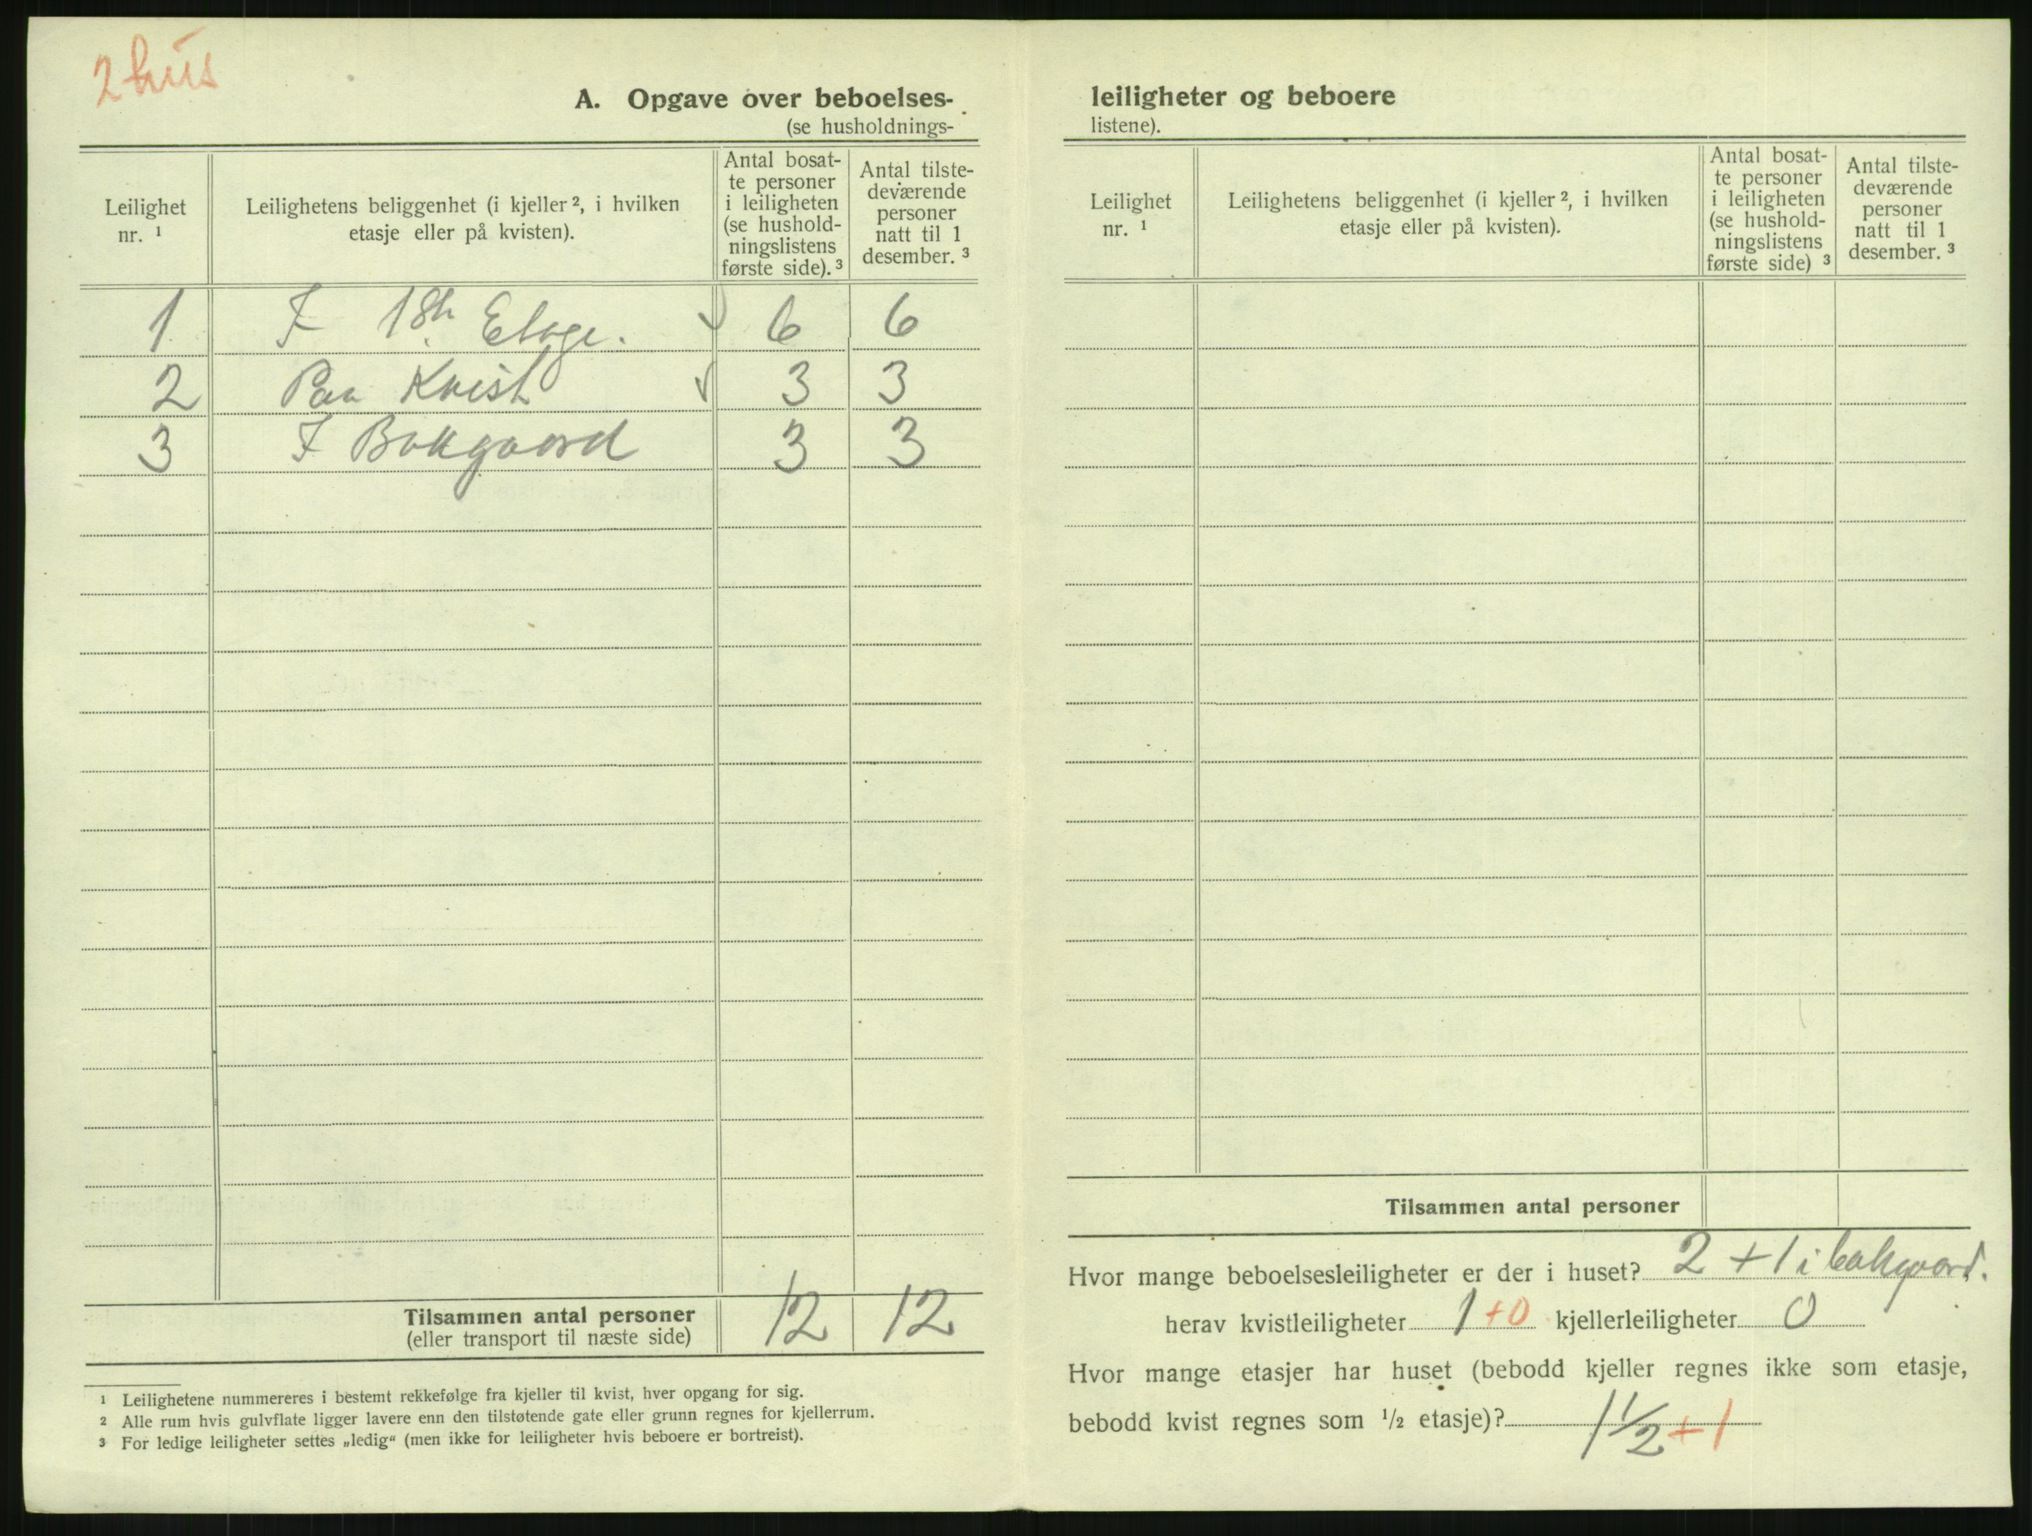 2 hus
A. Opgave over beboelses-
(se husholdnings-
Leilighet nr. ¹
Leilighetens beliggenhet (i kjeller ², i hvilken etasje eller på kvisten).
Antal bosat-
te personer
i leiligheten
(se hushold-
ningslistens
første side). ³
Antal tilste-
deværende
personer
natt til 1
desember. ³
1 I 1ste Etage. 6 6
2 Paa Kvist 3 3
3 I Bakgaard 3 3
Tilsammen antal personer 12 12
(eller transport til næste side)
¹ Leilighetene nummereres i bestemt rekkefølge fra kjeller til kvist, hver opgang for sig.
² Alle rum hvis gulvflate ligger lavere enn den tilstøtende gate eller grunn regnes for kjellerrum.
³ For ledige leiligheter settes „ledig“ (men ikke for leiligheter hvis beboere er bortreist).
leiligheter og beboere
listene).
Leilighet nr. ¹
Leilighetens beliggenhet (i kjeller ², i hvilken etasje eller på kvisten).
Antal bosat-
te personer
i leiligheten
(se hushold-
ningslistens
første side) ³
Antal tilste-
deværende
personer
natt til 1
desember. ³
Tilsammen antal personer
Hvor mange beboelsesleiligheter er der i huset? 2 + 1 i bakgaard.
herav kvistleiligheter 1 +0 kjellerleiligheter 0
Hvor mange etasjer har huset (bebodd kjeller regnes ikke som etasje,
bebodd kvist regnes som ½ etasje)? 1 ½ +1